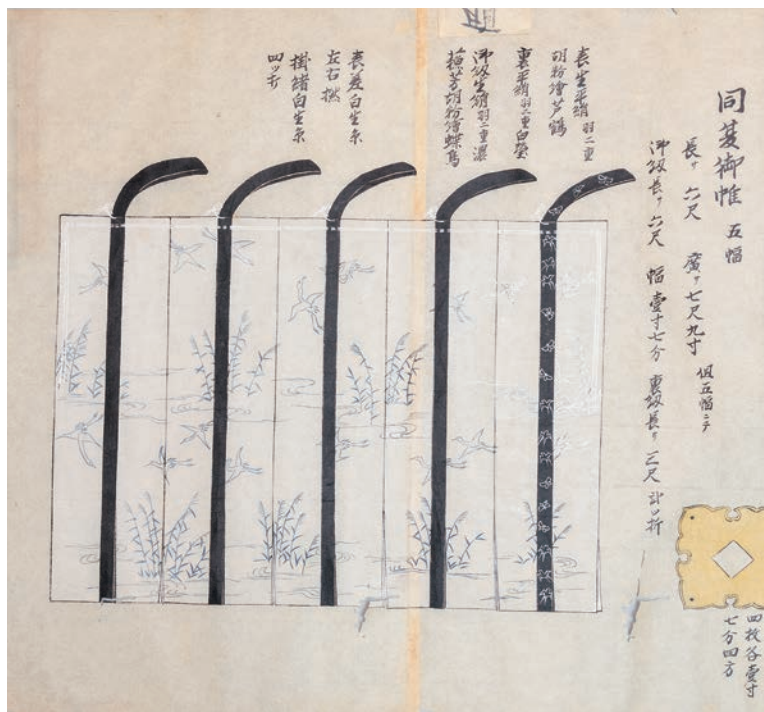 同夏御帷 五幅
長サ 六尺 廣サ 七尺九寸 但五幅ニテ
御紐長サ 六尺 幅 壹寸七分 裏紐長サ 三尺 計ツ折
表生平絹 羽二重
胡粉繪芦鶴
裏平絹 羽二重 白瑩
御紐生絹 羽二重 濃
蘓芳胡粉繪蝶鳥
表差白生糸
左右撚
掛緒白生糸
四ツ打
四枚各壹寸
七分四方